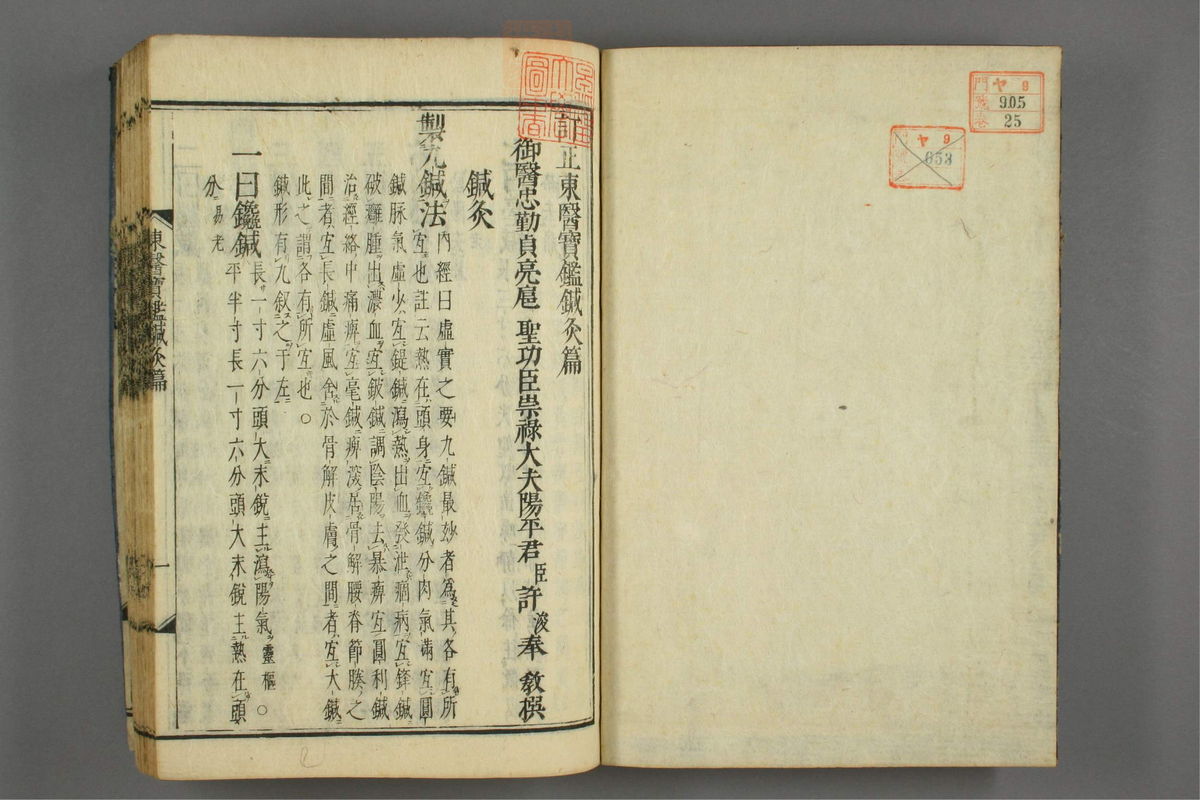 訂正東醫寶鑑鍼灸篇
御醫忠勤貞亮扈 聖功臣崇祿大夫陽平君臣許浚奉 敎撰
鍼灸
製九鍼法
內經曰虛實之要九鍼最妙者爲其各有所
宜也註云熱在頭身宜鑱鍼分肉氣滿宜圓
鍼脉氣虛少宜鍉鍼瀉熱出血發泄痼病宜鋒鍼
破癰腫出濃血宜鈹鍼調陰陽去暴痹宜圓利鍼
治經絡中痛痹宜毫鍼痹深居骨解腰脊節腠之
間者宜長鍼虛風舍於骨解皮膚之間者宜大鍼
此之謂各有所宜也○
鍼形有九叙之于左
一曰鑱鍼
長一寸六分頭大末銳主瀉陽氣靈樞○
平半寸長一寸六分頭大末銳主熱在頭
分易老
東醫寶鑑鍼灸篇
一
圖書
門 ヤ9
號 905
卷 25
ヤ9
653